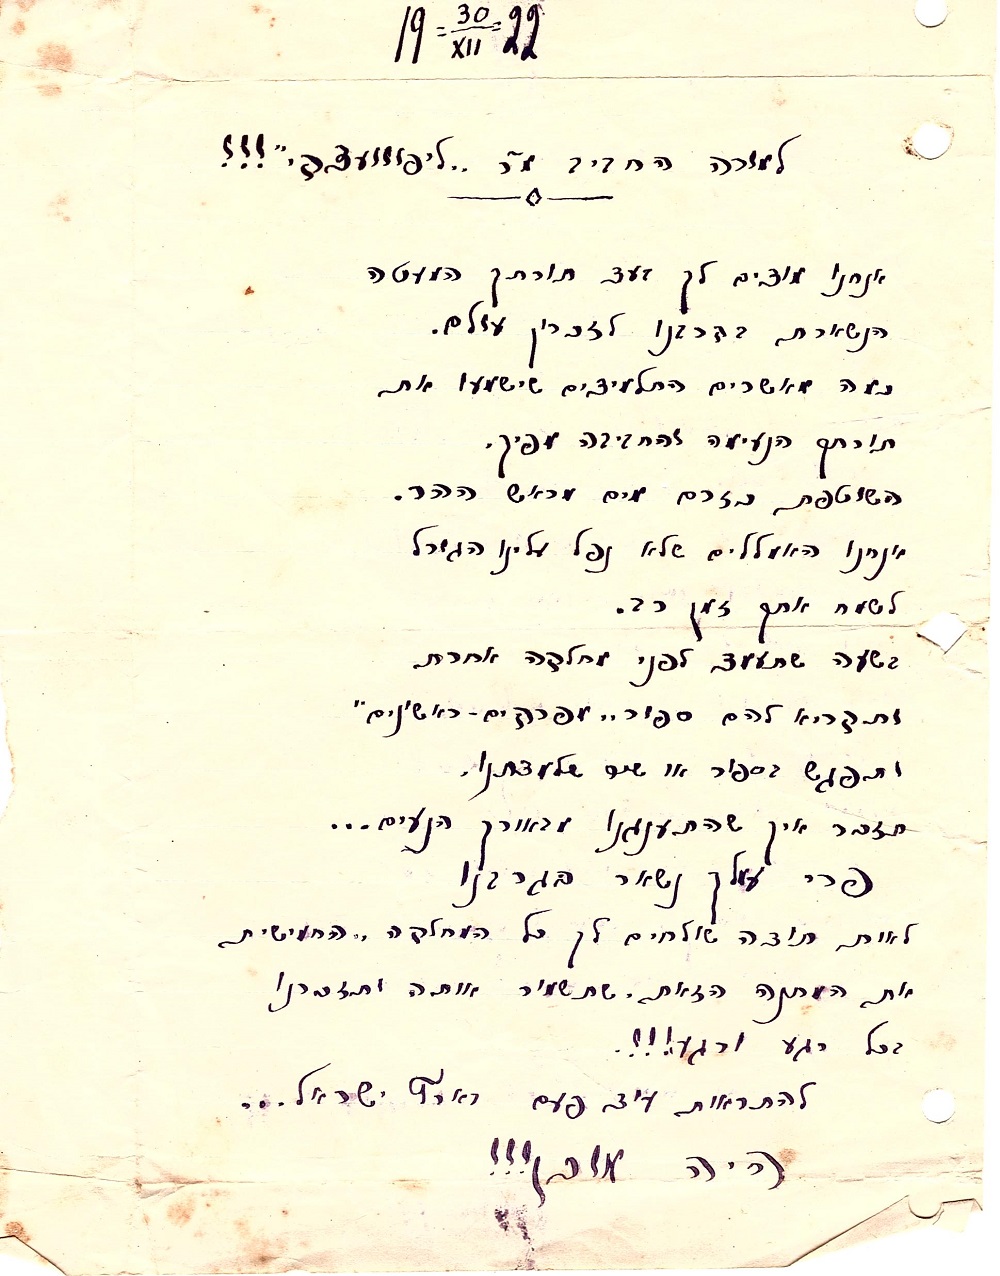 19 = 30/XII = 22
למורה החביב מ״ר ,,ליפוווצקי״!!!
אנחנו מודים לך בעד תורתך המעטה
הנשארת בקרבנו לזכרון עולם.
כמה מאשרים התלמידים שישמעו את
תורתך הנעימה והחביבה מפיך,
השוטפת כזרם מים מראש ההר.
אנחנו האומללים שלא נפל עלינו הגורל
לשמח אתך זמן רב.
בשעה שתעמד לפני מחלקה אחרת
ותקריא להם ספור ,,מפרקים-ראשונים״
ותפגש בספור או שיר שלמדתנו,
תזכר איך שהתענגנו מבאורך הנעים...
פרי עמלך נשאר בגרבנו
לאות תודה שולחים לך כל המחלקה ,,החמישית
את המתנה הזאת, שתשמור אותה ותזכרנו
בכל רגע ורגע!!!.
להתראות עוד פעם בארץ ישראל...
היה מוכן!!!